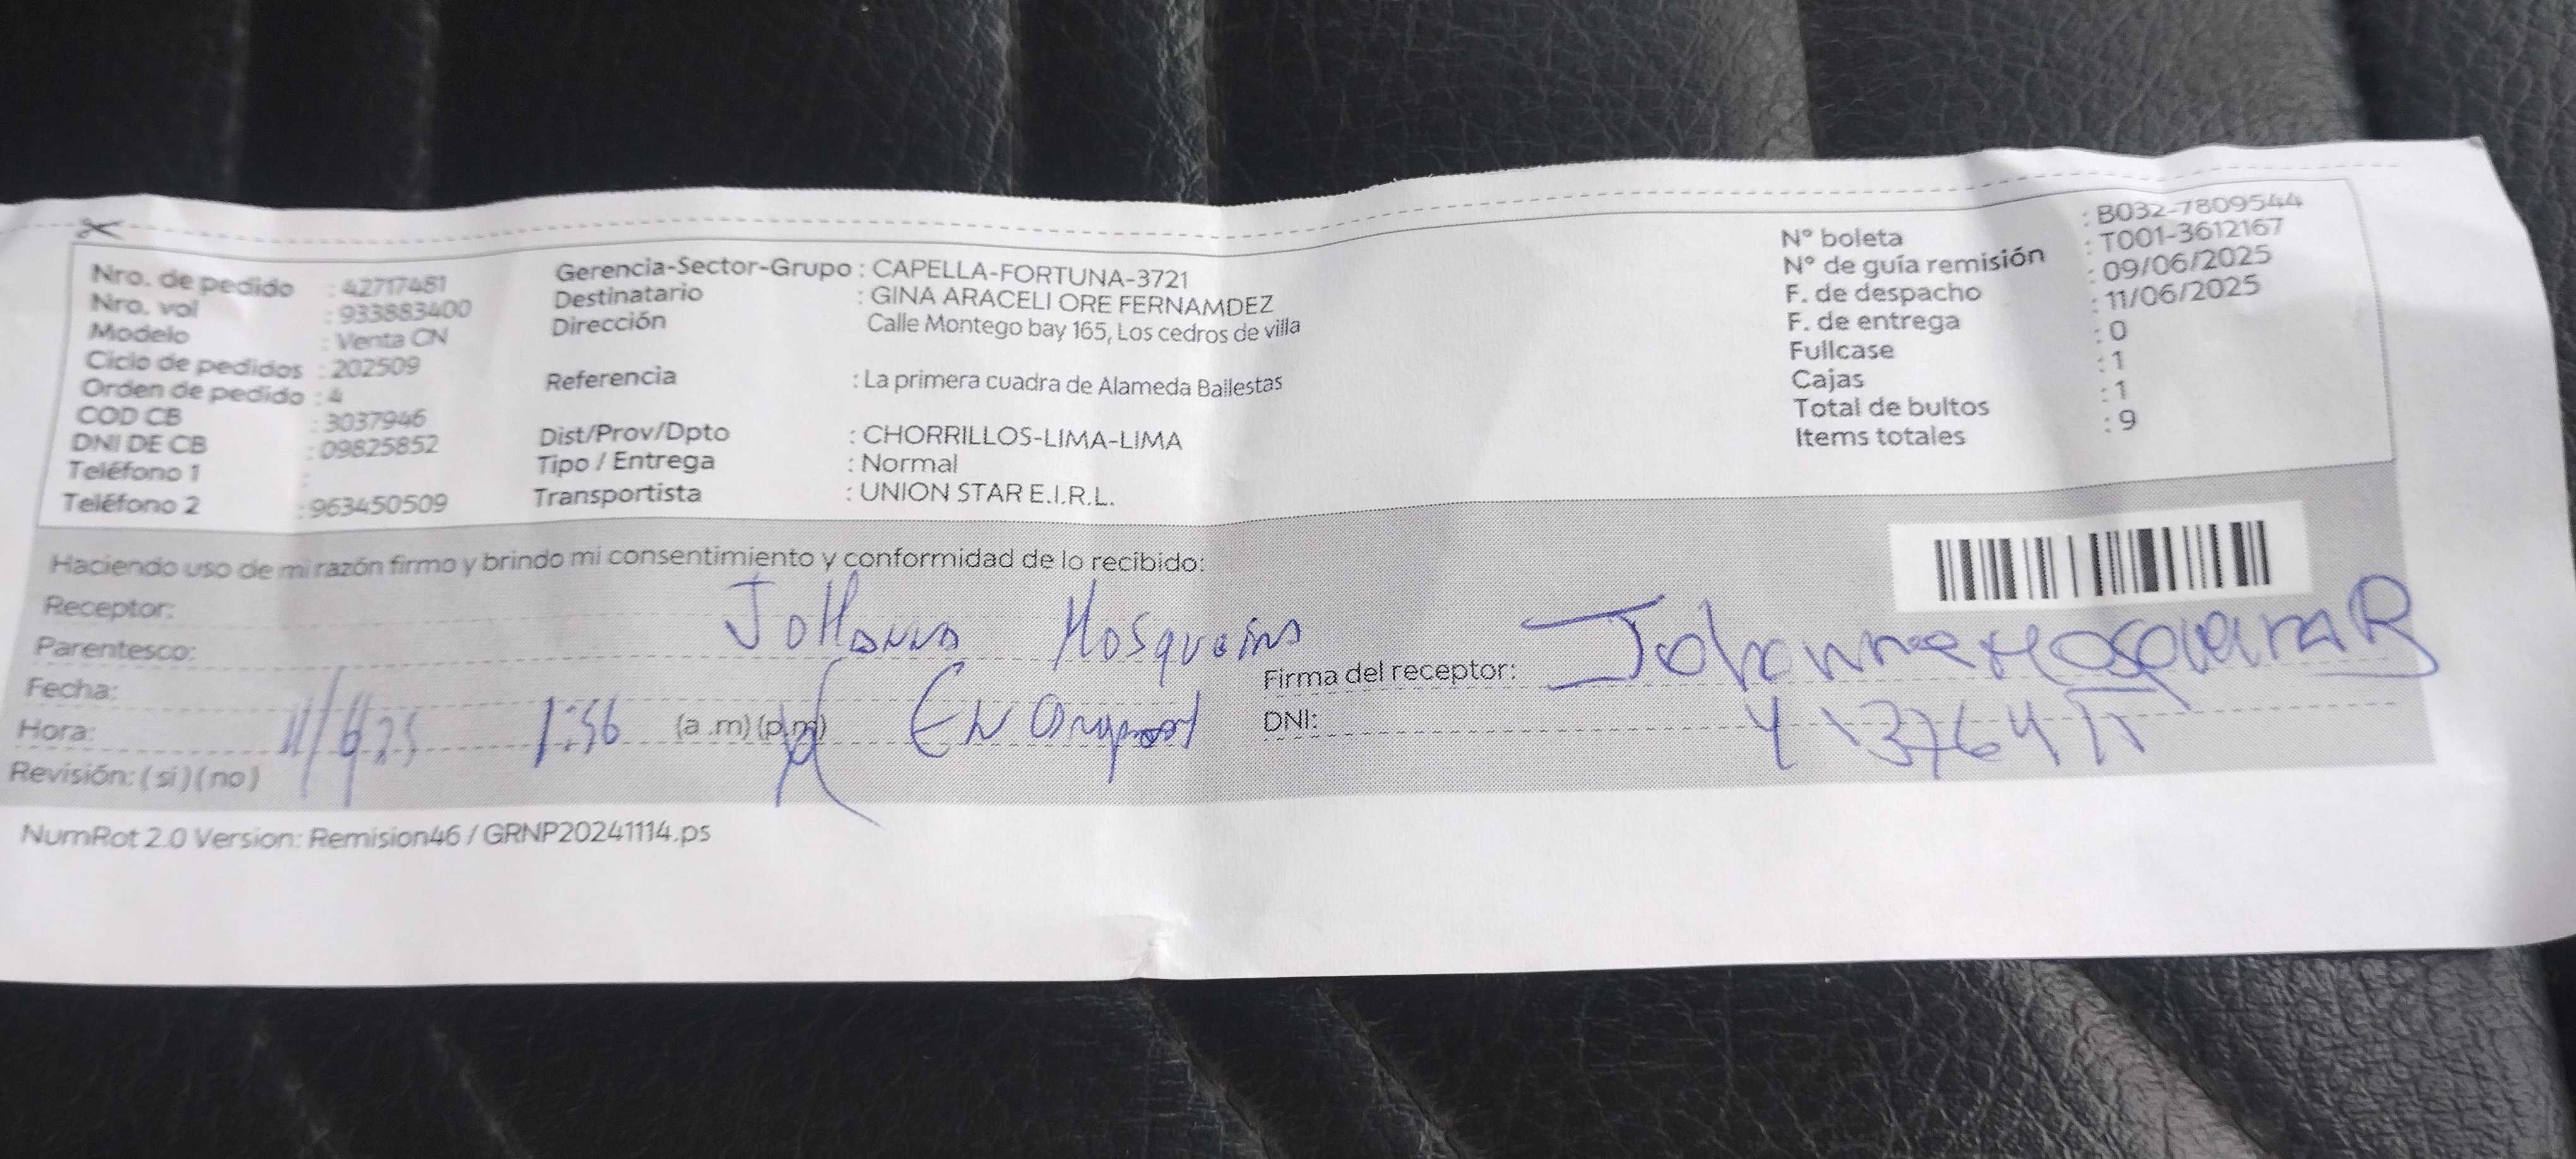 Nro. de pedido : 42717481
Nro. vol : 933883400
Modelo : Venta CN
Ciclo de pedidos : 202509
Orden de pedido : 4
COD CB : 3037946
DNI DE CB : 09825852
Teléfono 1 :
Teléfono 2 : 963450509
Gerencia-Sector-Grupo : CAPELLA-FORTUNA-3721
Destinatario : GINA ARACELI ORE FERNAMDEZ
Dirección Calle Montego bay 165, Los cedros de villa
Referencia : La primera cuadra de Alameda Ballestas
Dist/Prov/Dpto : CHORRILLOS-LIMA-LIMA
Tipo / Entrega : Normal
Transportista : UNION STAR E.I.R.L.
N° boleta : B032-7809544
N° de guía remisión : T001-3612167
F. de despacho : 09/06/2025
F. de entrega : 11/06/2025
Fullcase : 0
Cajas : 1
Total de bultos : 1
Items totales : 9
Haciendo uso de mi razón firmo y brindo mi consentimiento y conformidad de lo recibido:
Receptor: Johanna
Parentesco:
Fecha: 11/6/25
Hora: 1:56 (a .m) (p.m)
Revisión: (si) (no)
Firma del receptor: Johanna
DNI:
NumRot 2.0 Version: Remision46 / GRNP20241114.ps